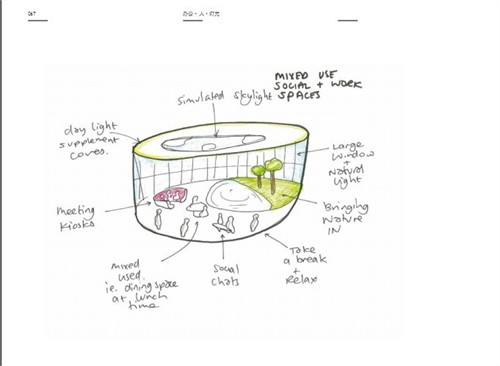 办公・人・灯光
MIXED USE
SOCIAL + WORK
SPACES
simulated skylight
day light
supplement
coves.
Large
window
+
Natural
light
meeting
kiosks
Bringing
Nature
IN
mixed
used.
i.e. dining space
at lunch
time
Social
chats
Take
a break
+
Relax